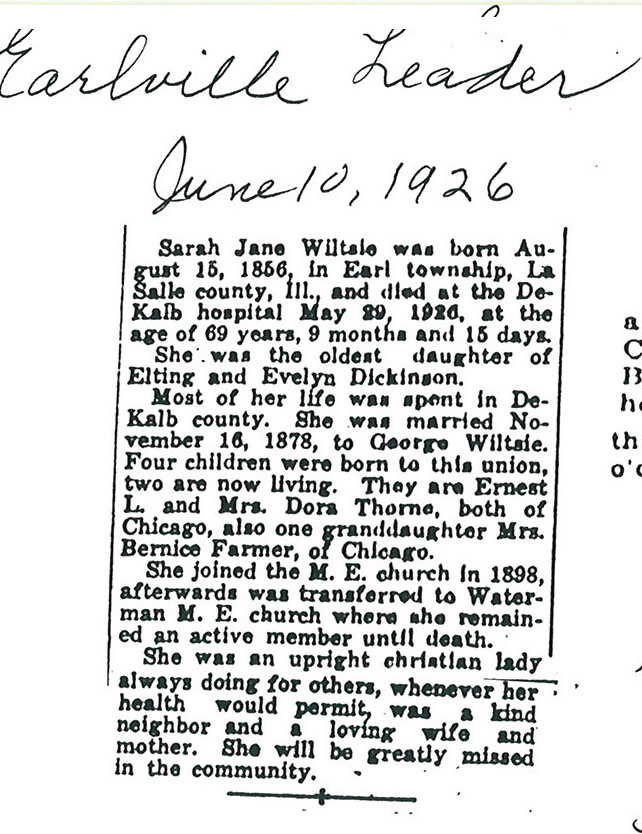 Earlville Leader
June 10, 1926
Sarah Jane Wiltsie was born Au-
gust 15, 1856, in Earl township, La
Salle county, Ill., and died at the De-
Kalb hospital May 29, 1926, at the
age of 69 years, 9 months and 15 days.
She was the oldest daughter of
Elting and Evelyn Dickinson.
Most of her life was spent in De-
Kalb county. She was married No-
vember 16, 1878, to George Wiltsie.
Four children were born to this union,
two are now living. They are Ernest
L. and Mrs. Dora Thorne, both of
Chicago, also one granddaughter Mrs.
Bernice Farmer, of Chicago.
She joined the M. E. church in 1898,
afterwards was transferred to Water-
man M. E. church where she remain-
ed an active member until death.
She was an upright christian lady
always doing for others, whenever her
health would permit, was a kind
neighbor and a loving wife and
mother. She will be greatly missed
in the community.